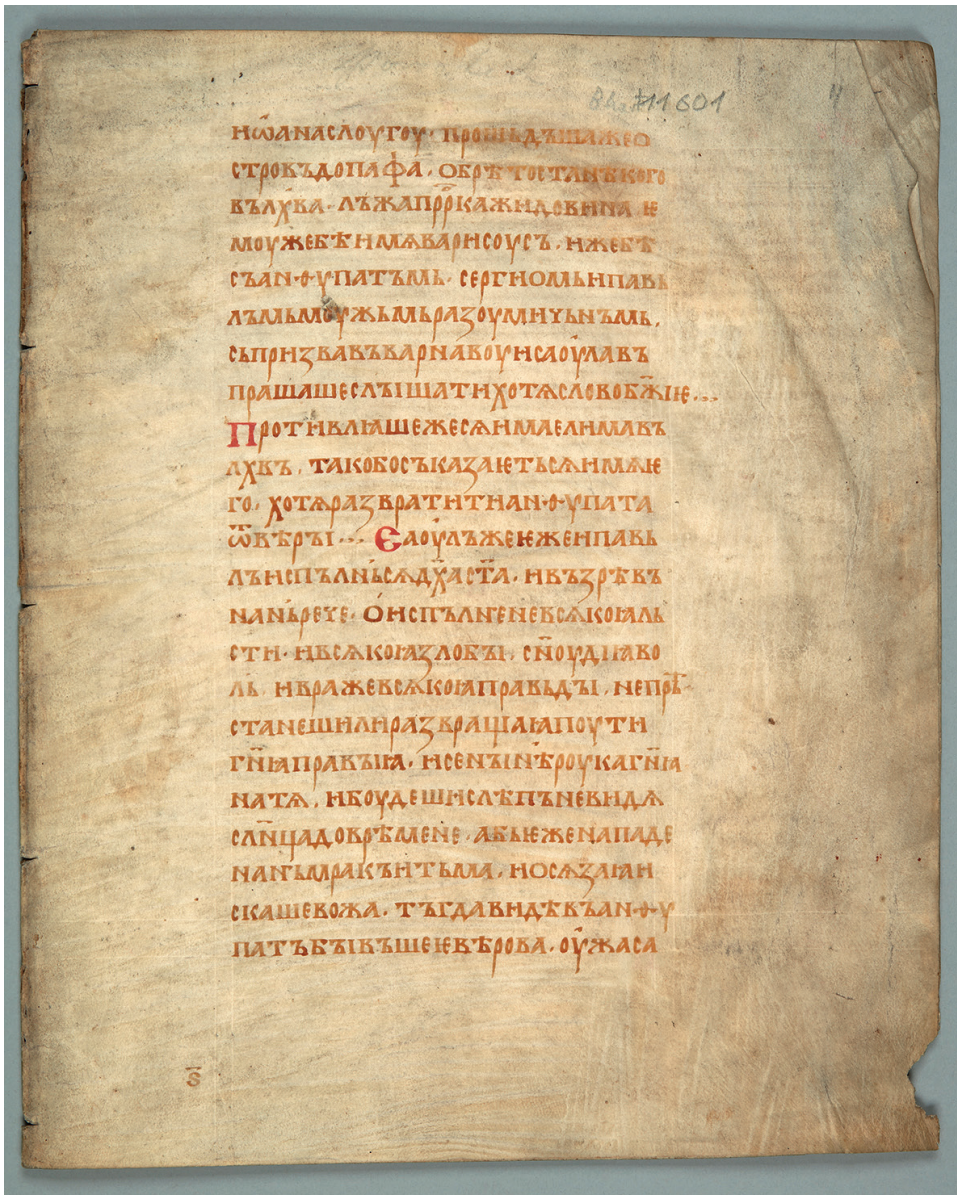 BAn #11601 4
иѡ҃анаслоугоу· прошьдъшажео
стровъдопафа҃· обрѣтостанѣкого
вълх҃ва· лъжапрр҃кажидовина ѥ
моужебѣимѧварисоусъ· ижебѣ
съан·ѳ·упатъмь· сергиомьипавь
лъмьмоужьмьразоумичьнъмь·
съпризвавъварнавоуисаоулавъ
прашашеслꙑшатихотѧсловобж҃иѥ·...
Противлꙗшежесѧимаелимавъ
лхвъ· такобосъказаѥтьсѧимѧѥ
го· хотѧразвратитиан·ѳ·упата
ѿвѣрꙑ... Саоулъжеѥжеипавь
лъиспълньсѧдх҃аст҃а· ивъзрѣвъ
нань҆рече· ѻиспълненевсѧкоꙗль
сти· ивсѧкоꙗзлобꙑ· сн҃оудиаво
ль ивражевсѧкоꙗправьдꙑ· непрѣ
станешилиразвращаꙗпоути
гн҃ꙗправꙑꙗ· исенꙑнѣроукагн҃ꙗ
натѧ· ибоудешислѣпъневидѧ
слн҃цадоврѣмене· абьѥженападе
наньмракъитьма· иосѧзаꙗи
скашевожа· тъгдавидѣвъан·ѳ·у
патъбꙑвъшеѥвѣрова· оужаса
ѕ҃